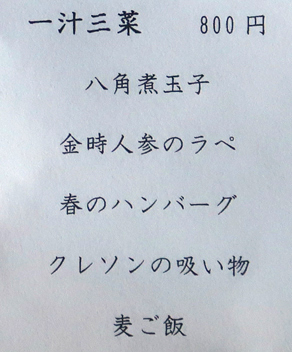 一汁三菜 800円
八角煮玉子
金時人参のラペ
春のハンバーグ
クレソンの吸い物
麦ご飯